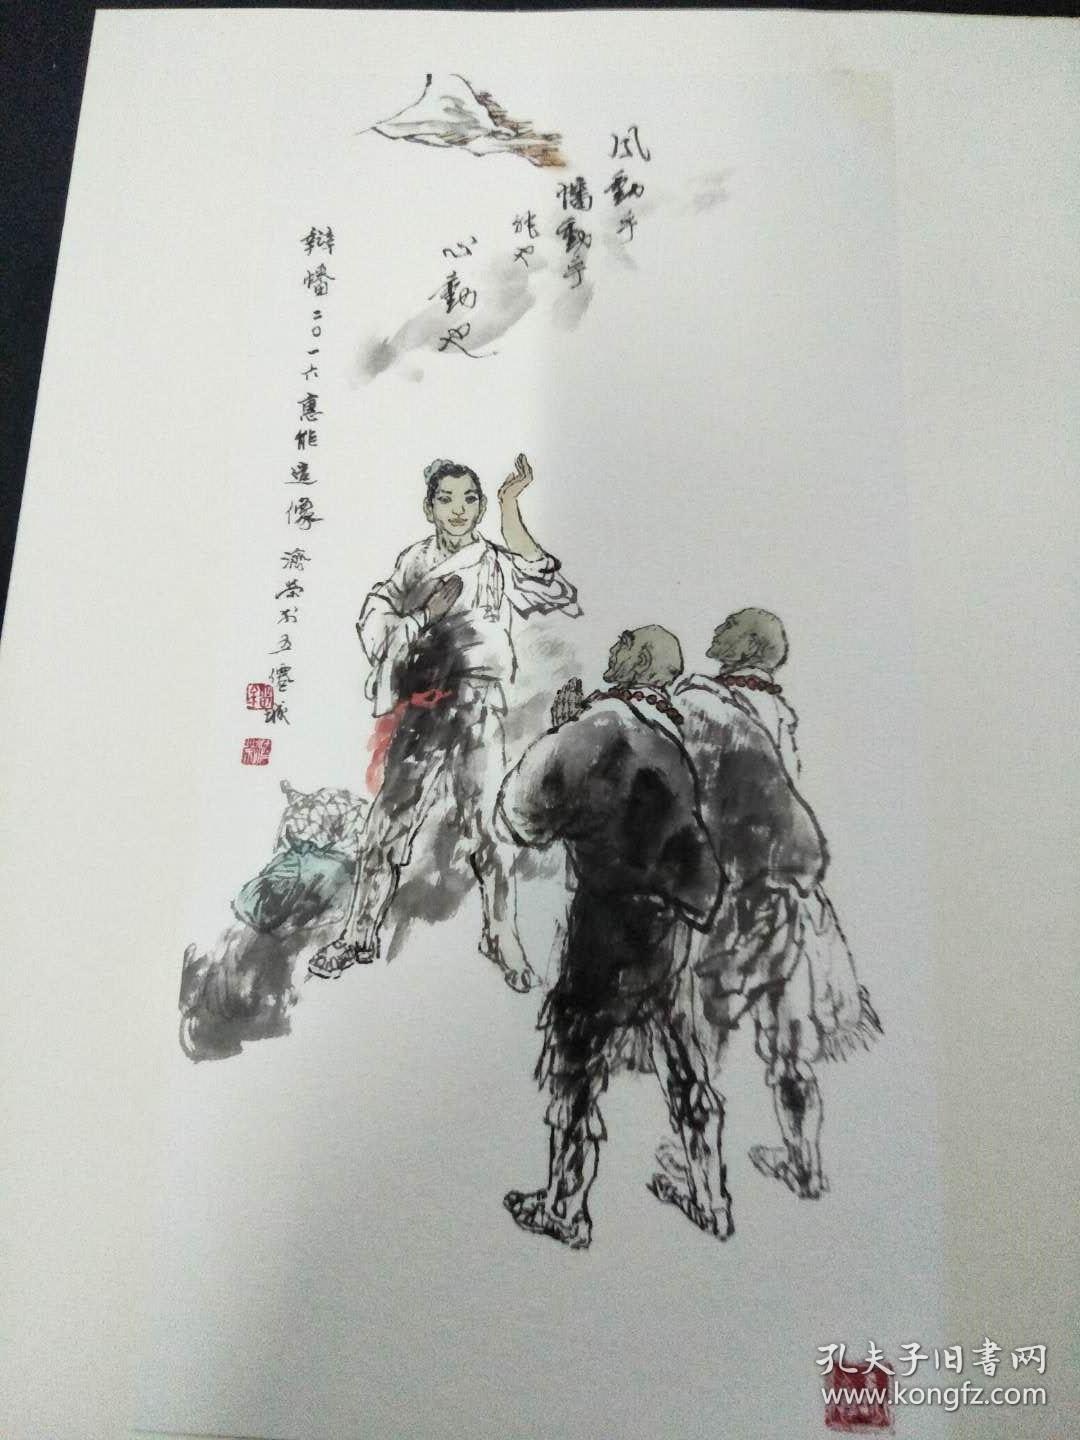 風動乎
幡動乎
能曰
心動也
辯幡二〇一六惠能造像 濟榮於五僊城
孔夫子旧書网
www.kongfz.com